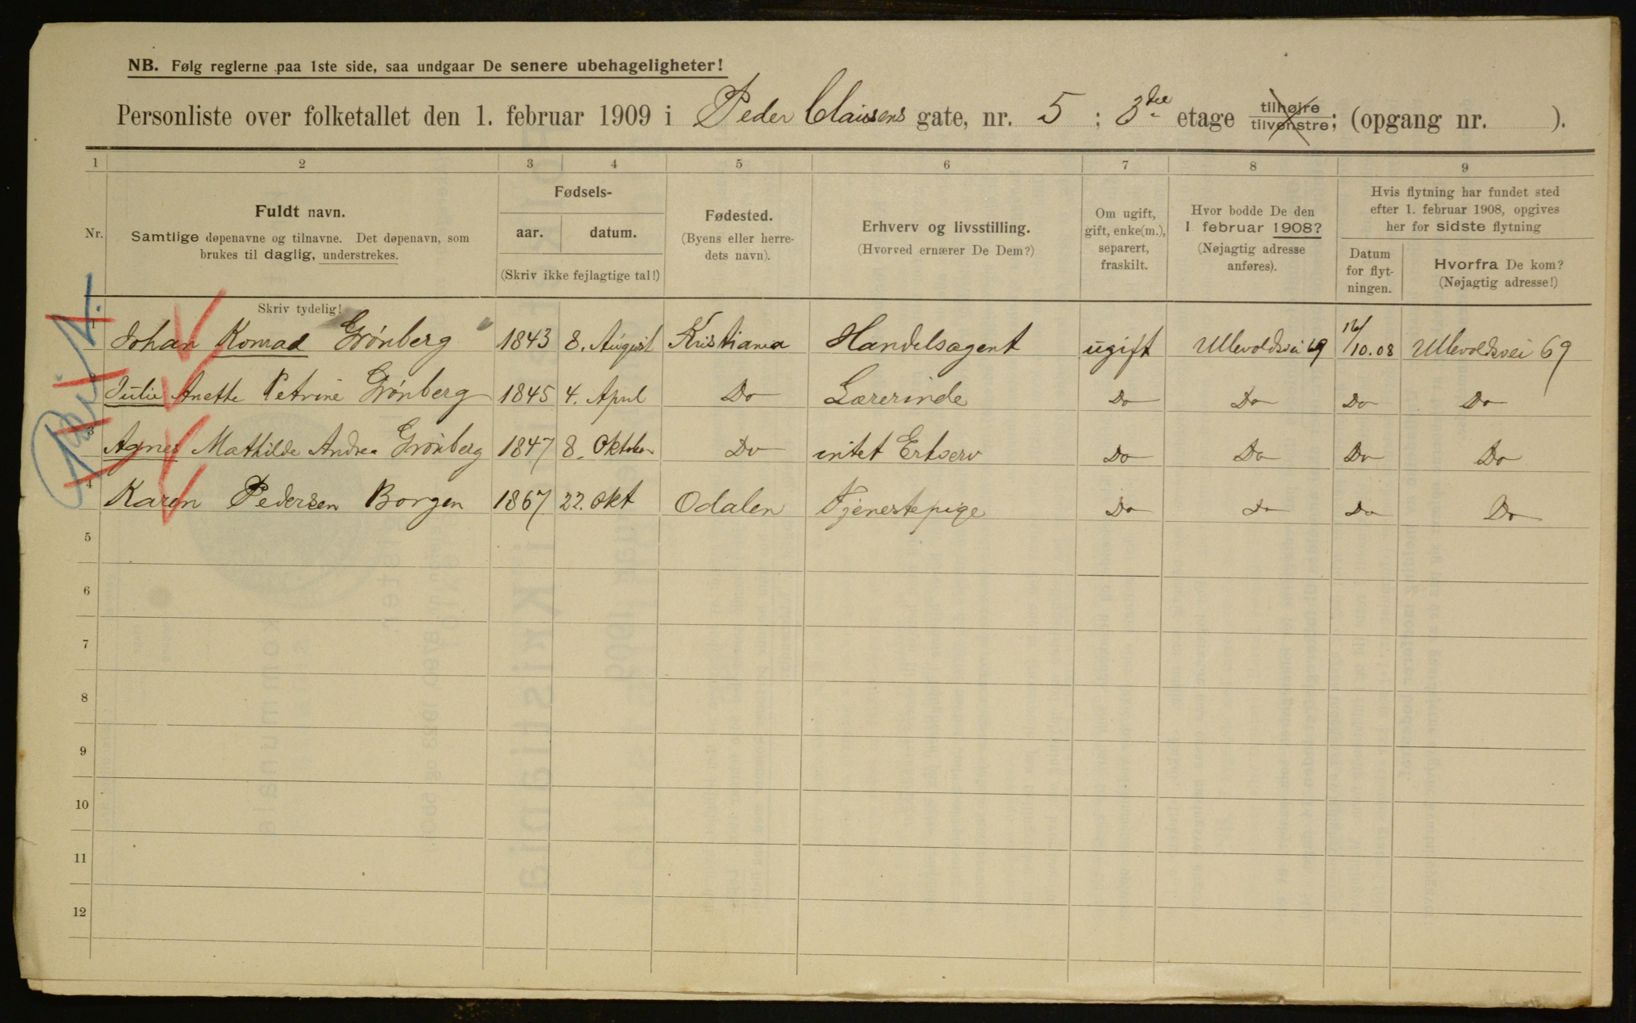 NB. Følg reglerne paa 1ste side, saa undgaar De senere ubehageligheter!
Personliste over folketallet den 1. februar 1909 i Peder Clausens gate, nr. 5 ; 3die etage tilhøire tilvenstre; (opgang nr. ).
1 2 3 4 5 6 7 8 9
Nr.
Fuldt navn.
Samtlige døpenavne og tilnavne. Det døpenavn, som
brukes til daglig, understrekes.
Skriv tydelig!
Fødsels-
aar. datum.
(Skriv ikke fejlagtige tal!)
Fødested.
(Byens eller herre-
dets navn).
Erhverv og livsstilling.
(Hvorved ernærer De Dem?)
Om ugift,
gift, enke(m.),
separert,
fraskilt.
Hvor bodde De den
1 februar 1908?
(Nøjagtig adresse
anføres).
Hvis flytning har fundet sted
efter 1. februar 1908, opgives
her for sidste flytning
Datum
for flyt-
ningen.
Hvorfra De kom?
(Nøjagtig adresse!)
1 Johan Konrad Grønberg 1843 8. August Kristiania Handelsagent ugift Ullevoldsvei 69 16/10.08 Ullevoldsvei 69
2 Julie Anette Petrine Grønberg 1845 4. April Do Lærerinde Do Do Do Do
3 Agnes Mathilde Andrea Grönberg 1847 8. Oktober Do intet Erhverv Do Do Do Do
4 Karen Pedersen Borgen 1867 22. Okt Odalen Tjenestepige Do Do Do Do
5
6
7
8
9
10
11
12